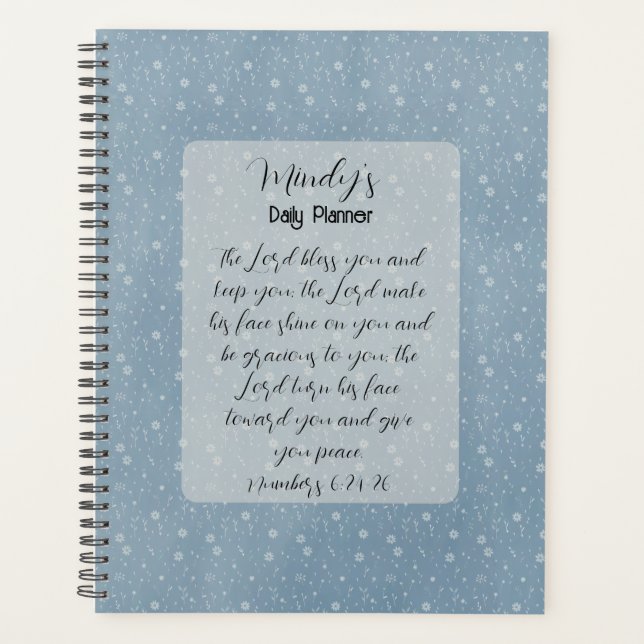 Mindy's
Daily Planner
The Lord bless you and
keep you; the Lord make
his face shine on you and
be gracious to you; the
Lord turn his face
toward you and give
you peace.
Numbers 6:24-26